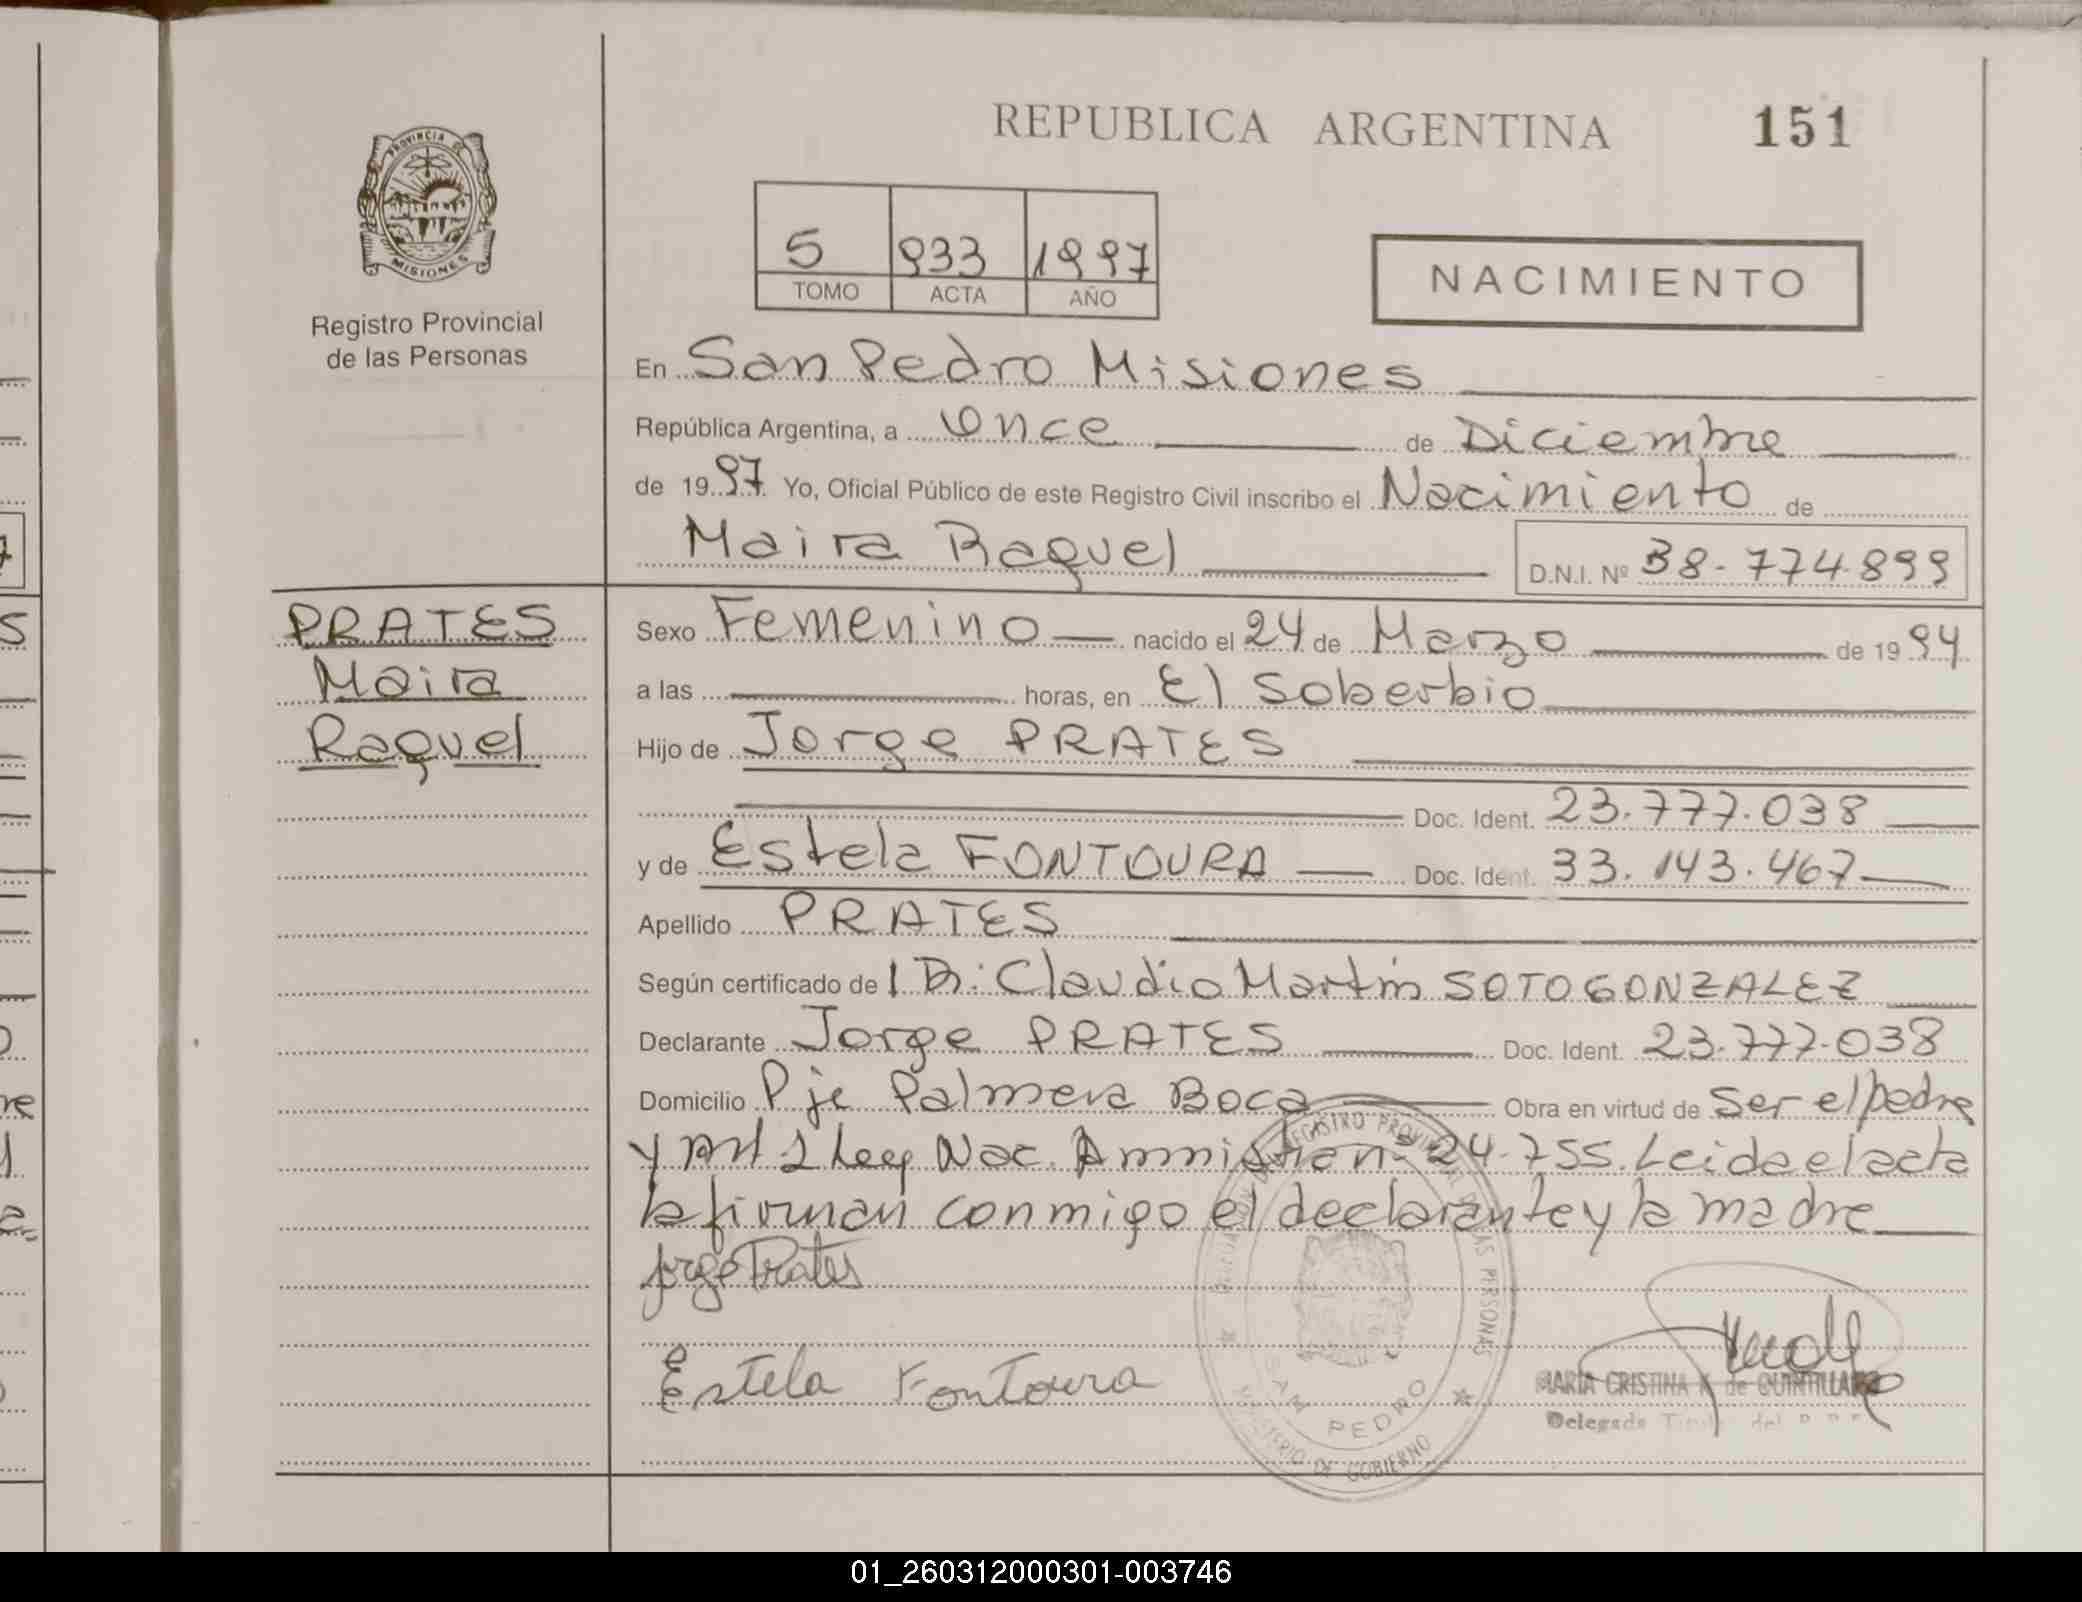 REPUBLICA ARGENTINA 151
PROVINCIA DE
MISIONES
Registro Provincial
de las Personas
5 933 1997
TOMO ACTA AÑO
NACIMIENTO
En San Pedro Misiones
República Argentina, a once de Diciembre
de 19 97 Yo, Oficial Público de este Registro Civil inscribo el Nacimiento de
Maira Raquel D.N.I. Nº 38.774.899
PRATES
Maira
Raquel
Sexo Femenino nacido el 24 de Marzo de 19 94
a las horas, en El Soberbio
Hijo de Jorge PRATES
Doc. Ident. 23.777.038
y de Estela FONTOURA Doc. Ident. 33.143.467
Apellido PRATES
Según certificado de l Dr: Claudio Martin SOTO GONZALEZ
Declarante Jorge PRATES Doc. Ident. 23.777.038
Domicilio Pje Palmera Boca Obra en virtud de Ser el padre
y Art 1 Ley Nac. Amnistia nº 24.755. Leida el acta
la firman conmigo el declarante y la madre
Jorge Prates
Estela Fontoura
REGISTRO PROVINCIAL DE LAS PERSONAS
SAN PEDRO
MINISTERIO DE GOBIERNO
MARIA CRISTINA K de QUINTILLANO
Delegada Titular del
01_260312000301-003746